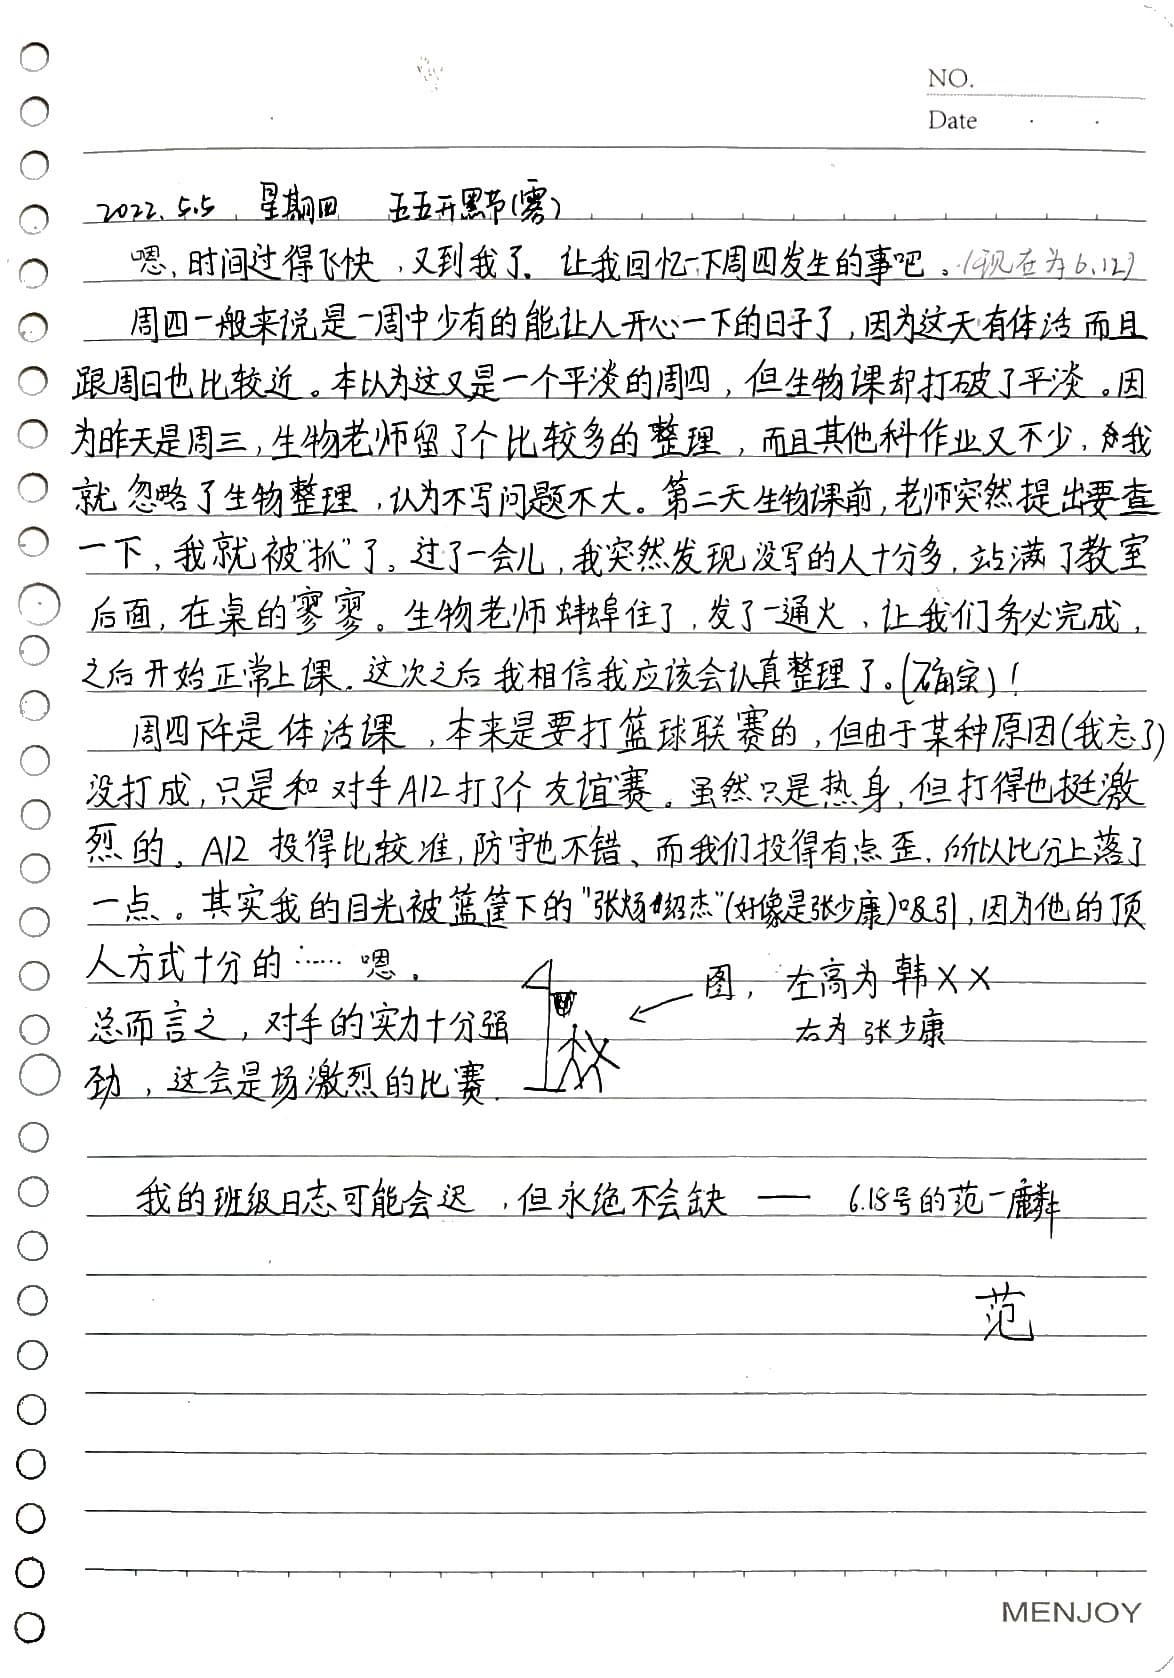 NO.
Date
2022.5.5 星期四 五五开黑节(雾)
嗯,时间过得飞快,又到我了.让我回忆一下周四发生的事吧。(现在为6.12)
周四一般来说是一周中少有的能让人开心一下的日子了,因为这天有体活而且
跟周日也比较近。本以为这又是一个平淡的周四,但生物课却打破了平淡。因
为昨天是周三,生物老师留了个比较多的整理,而且其他科作业又不少,我
就忽略了生物整理,认为不写问题不大。第二天生物课前,老师突然提出要查
一下,我就被"抓"了。过了一会儿,我突然发现没写的人十分多,站满了教室
后面,在桌的寥寥。生物老师蚌埠住了,发了一通火,让我们务必完成,
之后开始正常上课.这次之后我相信我应该会认真整理了。(确实)!
周四下午是体活课,本来是要打篮球联赛的,但由于某种原因(我忘了)
没打成,只是和对手A12打了个友谊赛。虽然只是热身,但打得也挺激
烈的。A12投得比较准,防守也不错、而我们投得有点歪,所以比分上落了
一点。其实我的目光被篮筐下的"张炀绍杰"(好像是张少康)吸引,因为他的顶
人方式十分的……嗯.
图, 左高为韩××
总而言之,对手的实力十分强
右为张少康
劲,这会是场激烈的比赛.
我的班级日志可能会迟,但永绝不会缺 —— 6.18号的范一麟
范
MENJOY